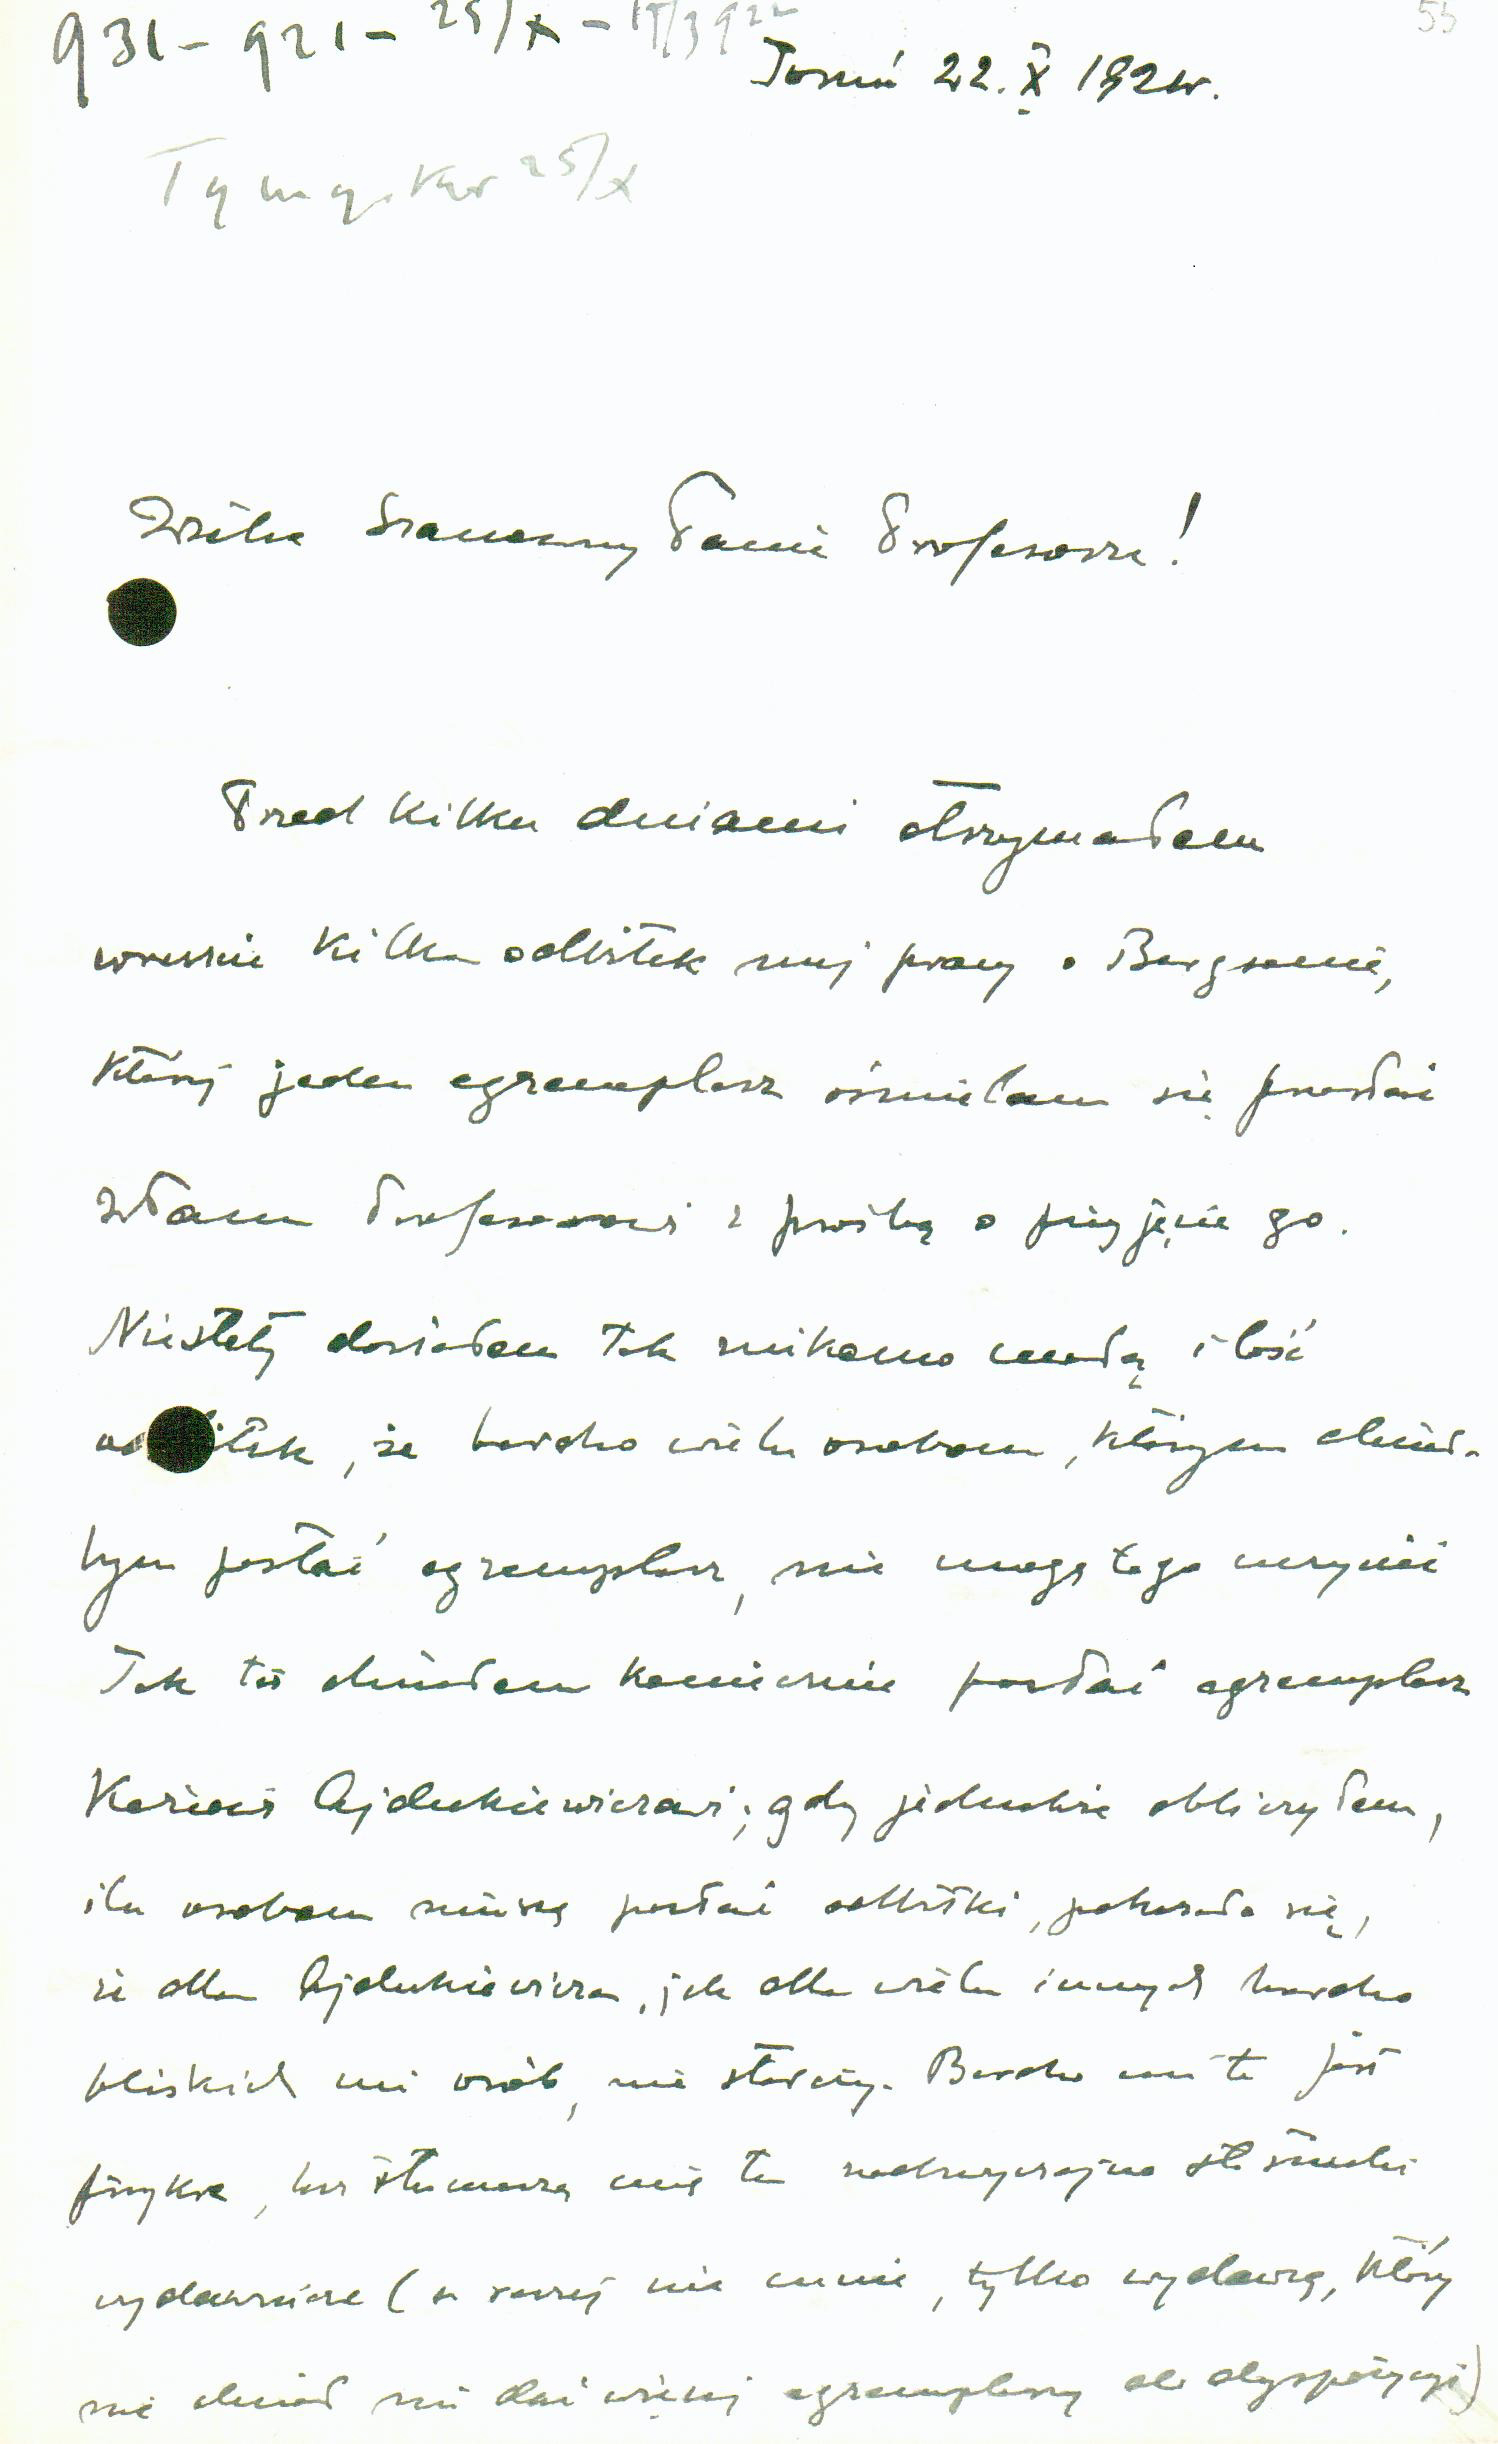 931 – 921 – 25/X – 15/3 922
55
Toruń 22. X 1921 r.
25/X
Wielce Szanowny Panie Profesorze!
Przed kilku dniami otrzymałem
wreszcie kilka odbitek mej pracy o Bergsonie,
której jeden egzemplarz ośmielam się przesłać
WPanu Profesorowi z prośbą o przyjęcie go.
Niestety dostałem tak znikomo małą ilość
odbitek, że bardzo wielu osobom, którym chciał-
bym posłać egzemplarz, nie mogę tego uczynić
Tak też chciałem koniecznie posłać egzemplarz
Kaziowi Ajdukiewiczowi; gdy jednakże obliczyłem,
ilu osobom muszę posłać odbitki, pokazało się,
że dla Ajdukiewicza, jak dla wielu innych bardzo
bliskich mi osób, nie starczy. Bardzo mi to jest
przykre, lecz tłumaczą mię tu nadzwyczajne stosunki
wydawnicze (a raczej nie mnie, tylko wydawcę, który
nie chciał mi dać więcej egzemplarzy do dyspozycji)